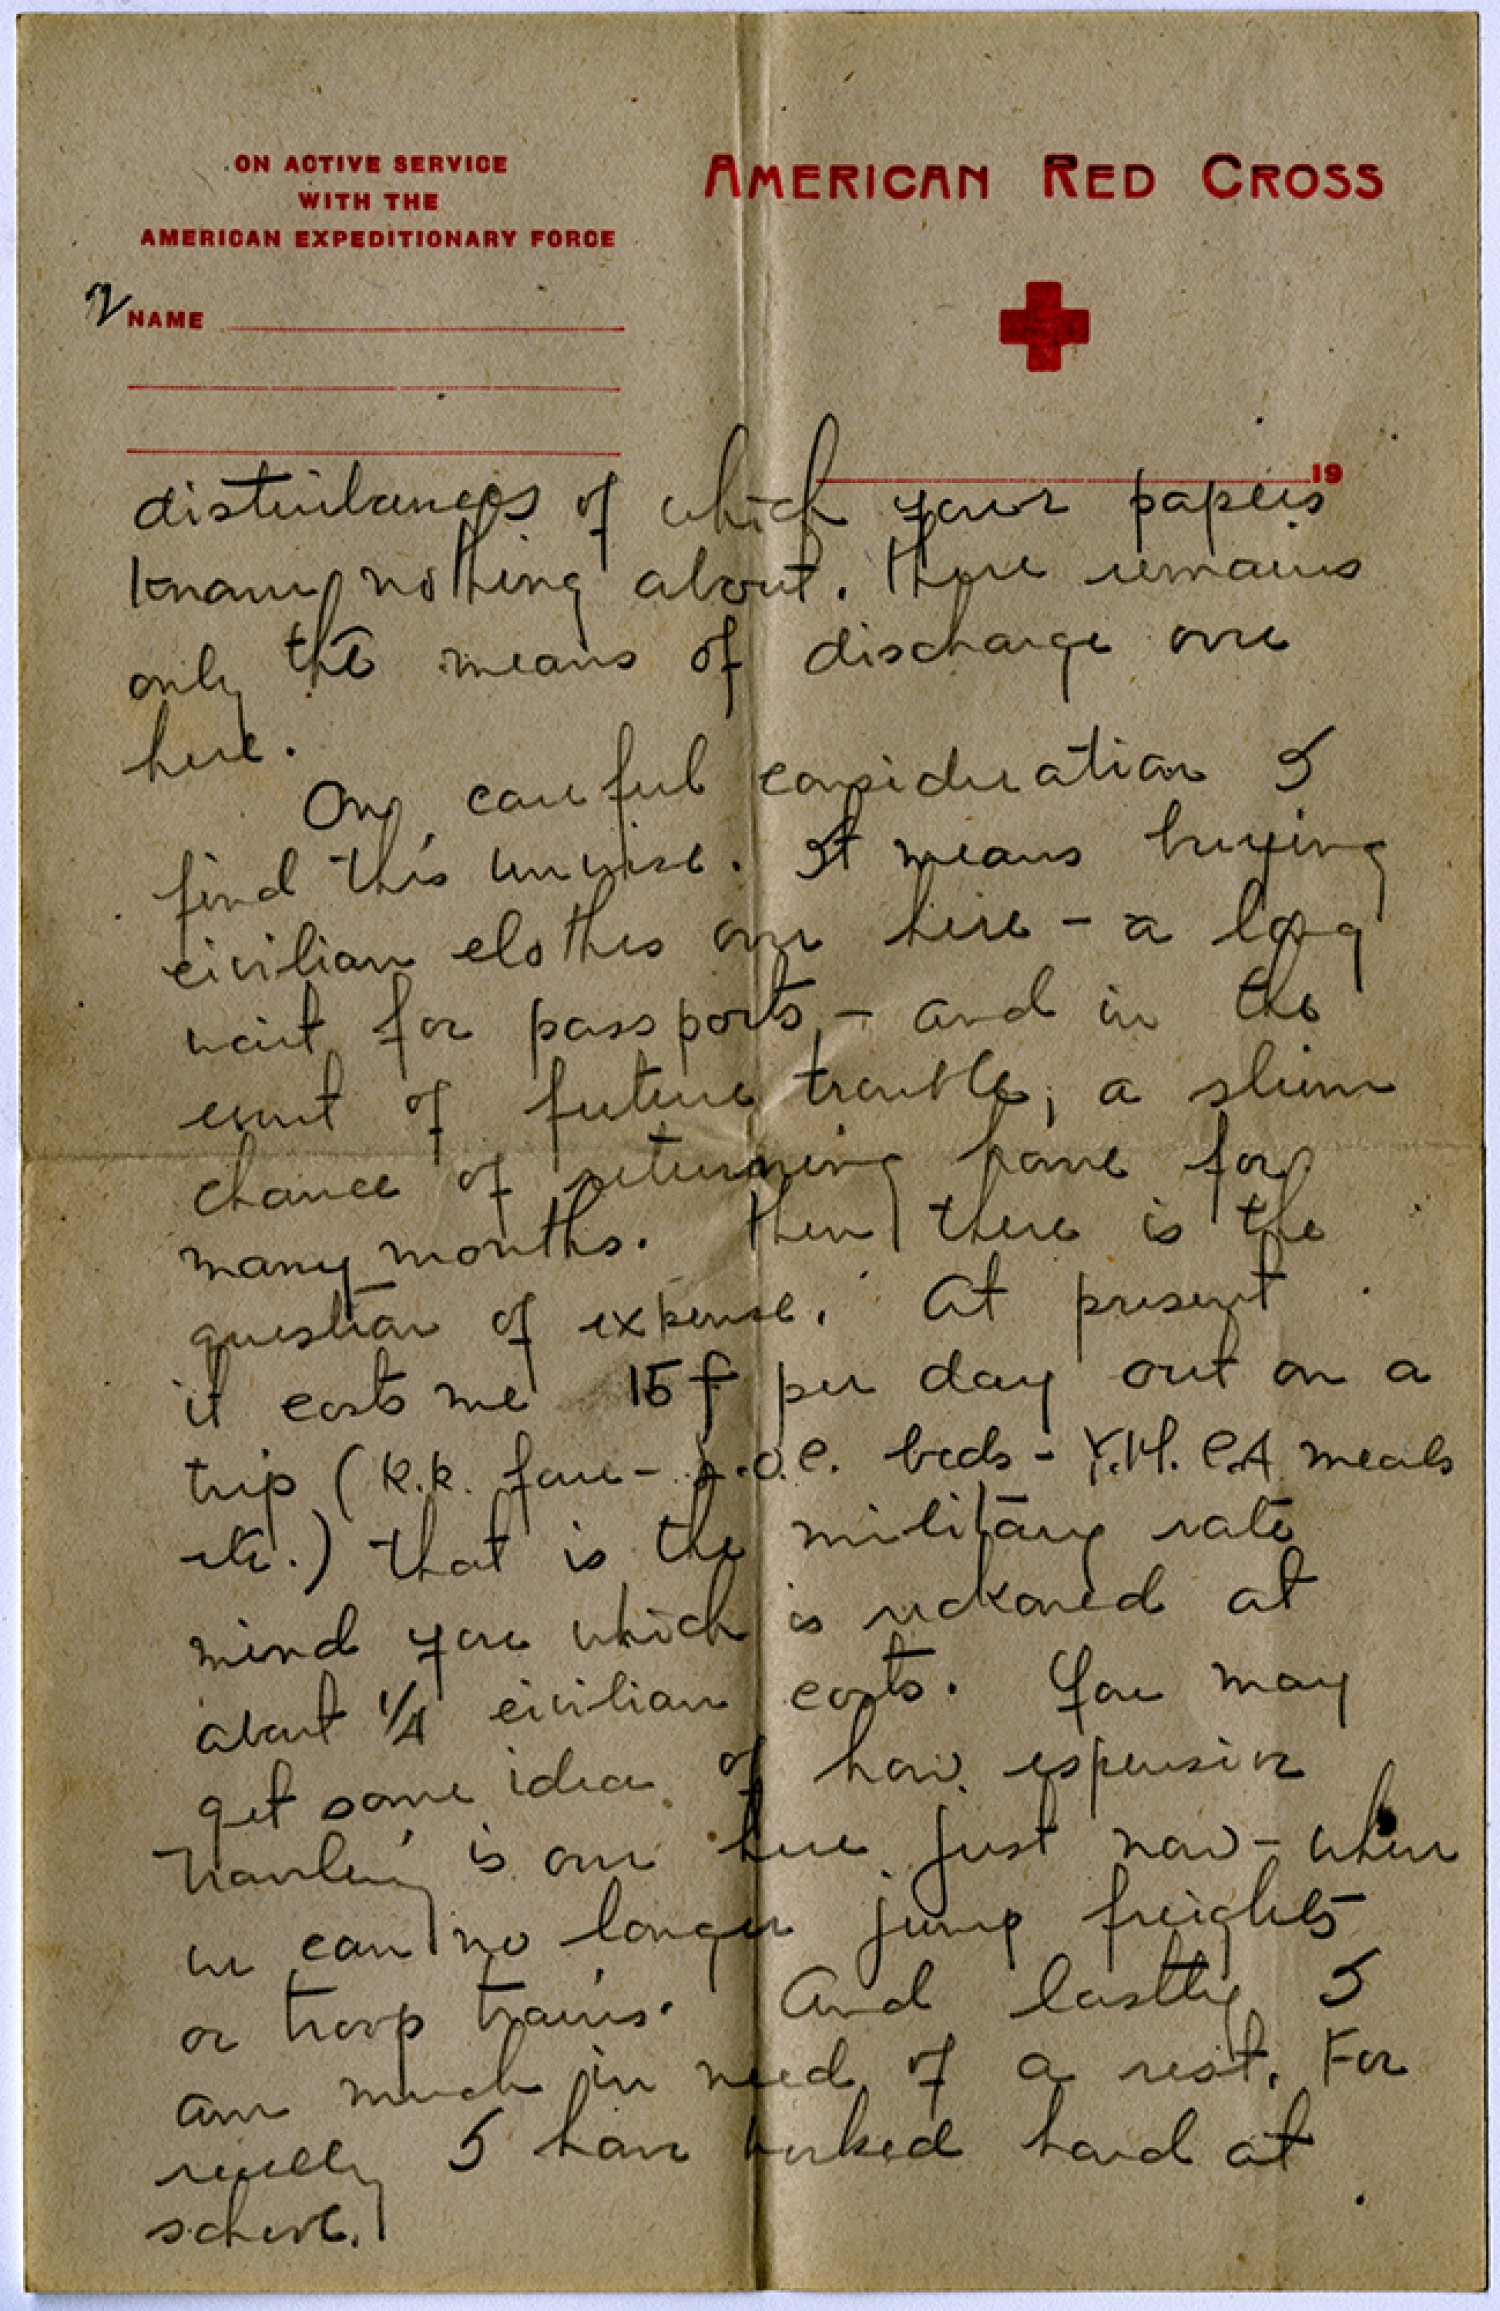 ON ACTIVE SERVICE
WITH THE
AMERICAN EXPEDITIONARY FORCE
AMERICAN RED CROSS
2
NAME
19
disturbances of which your papers
know nothing about. There remains
only the means of discharge over
here.
On careful consideration I
find this unwise. It means buying
civilian clothes over here - a long
wait for passports - and in the
event of future trouble, a slim
chance of returning home for
many months. Then there is the
question of expense. At present
it costs me 15f per day out on a
trip (R.R. fare - A.O.C. beds - Y.M.C.A meals
etc.) that is the military rate
mind you which is reckoned at
about 1/4 civilian costs. You may
get some idea of how expensive
traveling is over here just now - when
we can no longer jump freights
or troop trains. And lastly I
am much in need of a rest. For
really I have worked hard at
school.